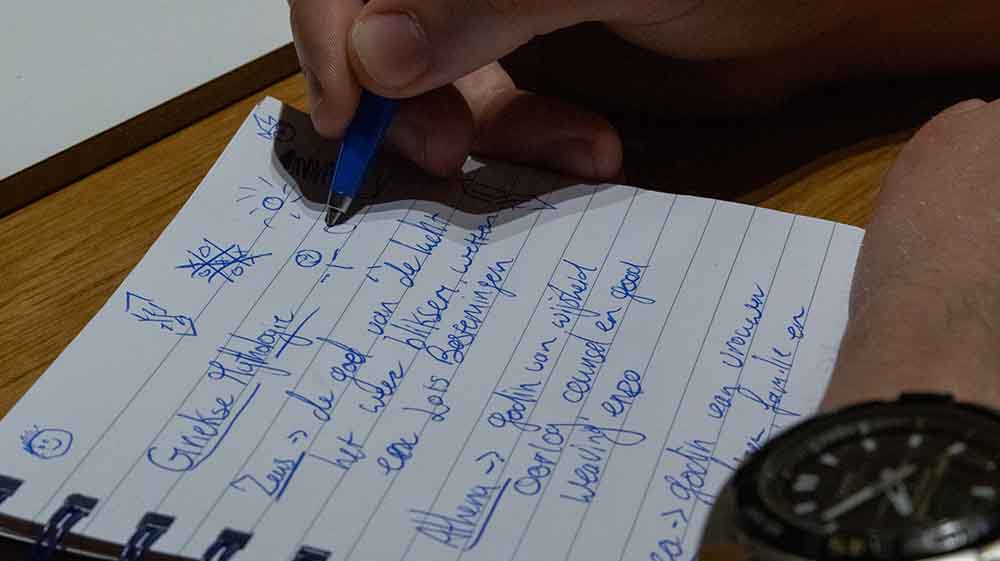 Griekse Mythologie
Zeus -> de god van de lucht
het weer bliksem, wetten
een Lots Bestemingen
Athena -> godin van wijsheid
oorlog counsel en good
weaving enzo
-> godin van vrouwen
familie en